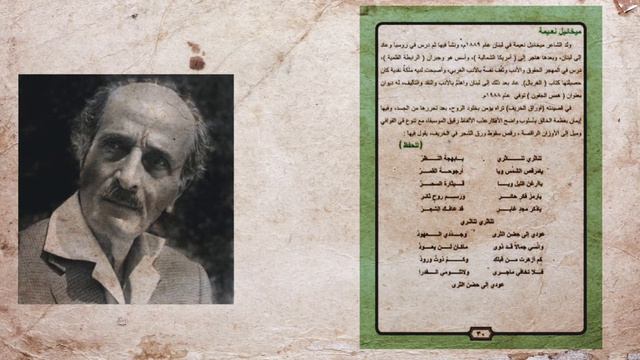 ميخائيل نعيمة
ولد الشاعر ميخائيل نعيمة في لبنان عام ١٨٨٩م، ونشأ فيها ثم درس في روسيا وعاد
إلى لبنان، وبعدها هاجر إلى ( أمريكا الشمالية )، وأسس هو وجبران ( الرابطة القلمية )،
درس في المهجر الحقوق والأدب وثقف نفسه بالأدب العربي، وأصبحت لديه ملكة نقدية كان
حصيلتها كتاب ( الغربال). عاد بعد ذلك إلى لبنان واهتم بالأدب والنقد والتأليف، له ديوان
بعنوان ( همس الجفون ) توفي عام ١٩٨٨م.
في قصيدته (أوراق الخريف) تراه يؤمن بخلود الروح، بعد تحررها من الجسد، وفيها
إيمان بعظمة الخالق بأسلوب واضح الأفكار عذب الألفاظ رقيق الموسيقا، مع تنوع في القوافي
وميل إلى الأوزان الراقصة ، رقص سقوط ورق الشجر في الخريف، يقول فيها :
(للحفظ)
تناثري تناثري يا بهجة النظر
يا مرقص الشمس ويا أرجوحة القمر
يا أرغن الليل ويا قيثارة السحر
يا رمز فكر حائر ورسم روح ثائر
يا ذكر مجد غابر قد عافك الشجر
تناثري تناثري
عودي إلى حضن الثرى وجددي العهود
وانسي جمالاً قد ذوى ما كان لن يعود
كم أزهرت من قبلك وكم ذوت ورود
فلا تخافي ما جرى ولا تلومي القدرا
عودي إلى حضن الثرى
٣٠